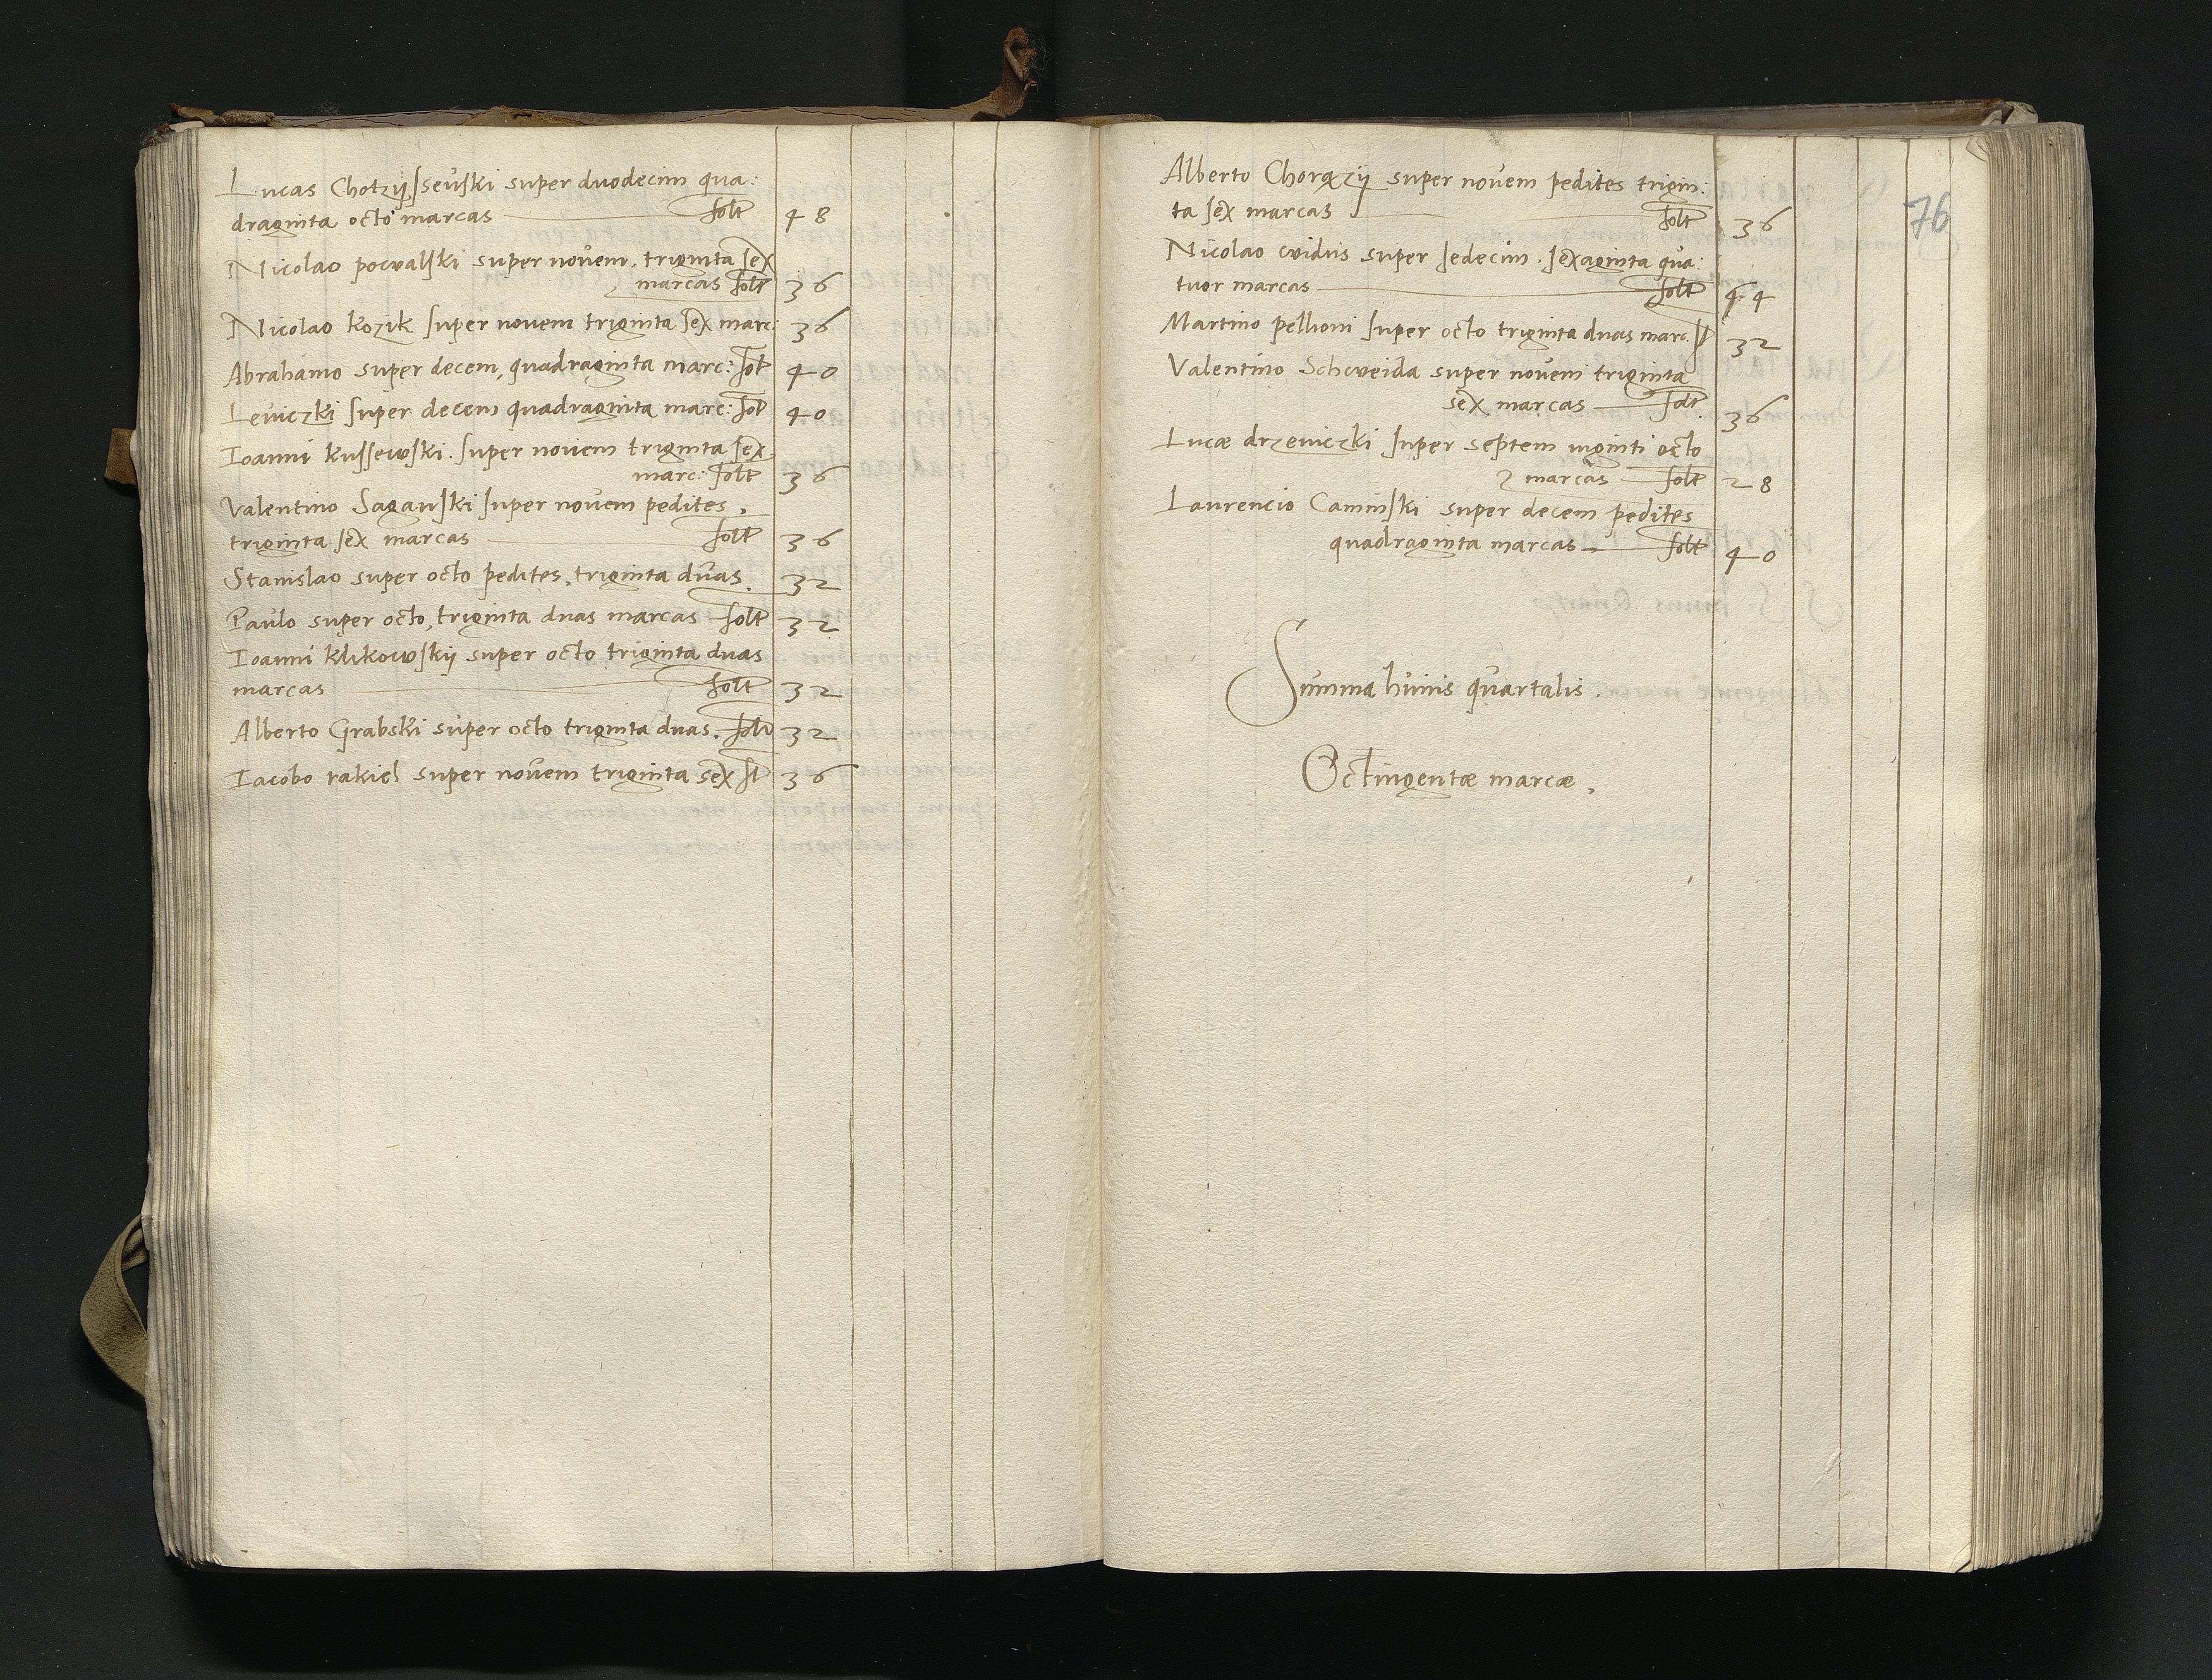 Lucas Chotzÿsseuski super duodecim qua:
draginta octo marcas solt 48
Nicolao pocvalski super novem, triginta sex
marcas solt 36
Nicolao kozik super novem triginta sex marc: 36
Abrahamo super decem, quadraginta marc: solt 40
Leviczki super decem quadraginta marc: sol 40
Ioanni kussewski. super novem triginta sex
marc: solt 36
Valentino Saganski super novem pedites,
triginta sex marcas solt 36
Stanislao super octo pedites, triginta duas. 32
Paulo super octo, triginta duas marcas solt 32
Ioanni klikowskij super octo triginta duas
marcas solt 32
Alberto Grabski super octo triginta duas. solu 32
Iacobo rakiel super novem triginta sex sl 36
76
Alberto Chorązij super novem pedites trigin:
ta sex marcas solt 36
Nicolao cvidus super sedecim. sexaginta qua:
tuor marcas solt 64
Martino pellioni super octo triginta duas marc. sl 32
Valentino Schcveida super novem triginta
sex marcas solt 36
Lucæ drzeviczki super septem viginti octo
marcas solt 28
Laurencio Caminski super decem pedites
quadraginta marcas solt 40
Summa huius quartalis.
Octingentæ marcæ,